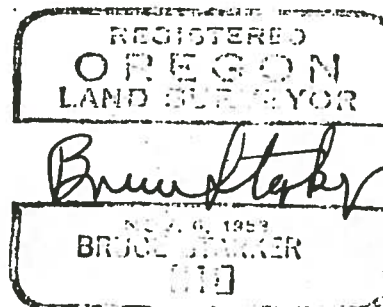 REGISTERED
OREGON
LAND SURVEYOR
Bruce Staker
NOV. 6, 1959
BRUCE STAKER